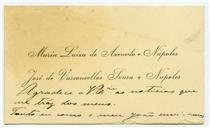 Maria Luiza de Azevedo e Napoles
José de Vasconcellos Sousa e Napoles
Agradece a V. Ex.ª as noticias que
me traz dos meus.
Tanto eu como o meu João